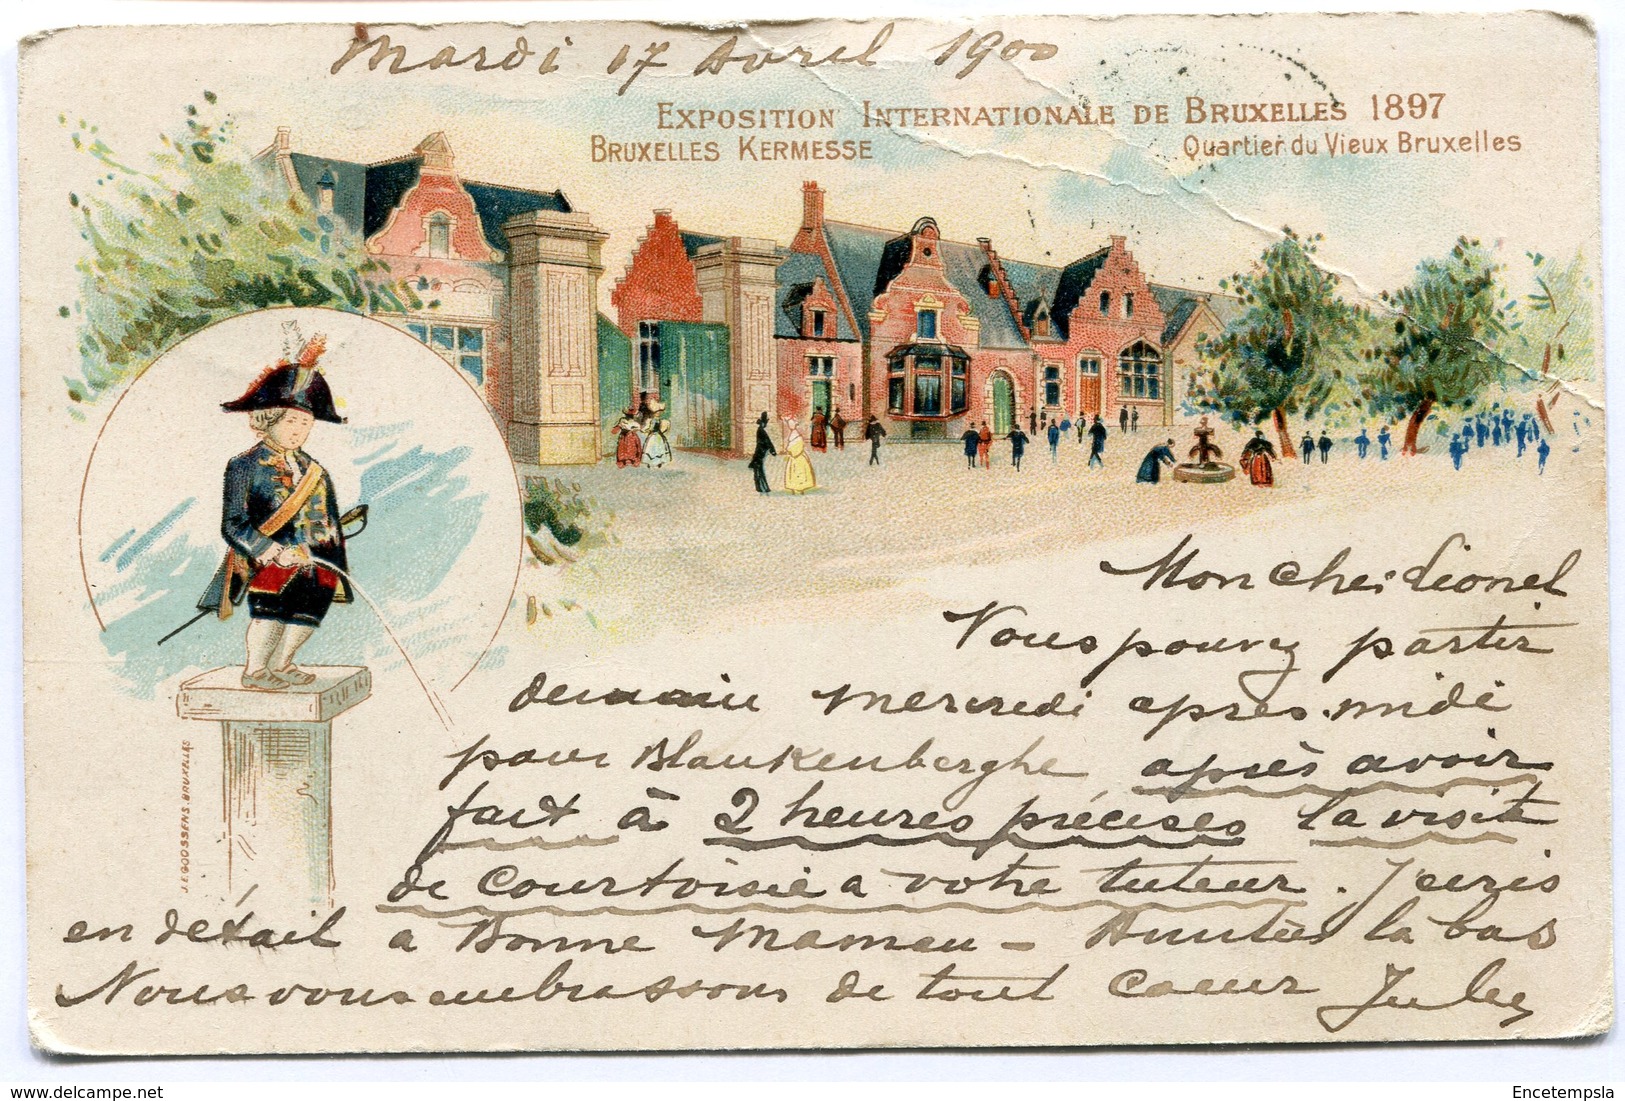 Mardi 17 Avril 1900
EXPOSITION INTERNATIONALE DE BRUXELLES 1897
BRUXELLES KERMESSE
Quartier du Vieux Bruxelles
Mon Cher Lionel
Vous pouvez partir
demain mercredi après midi
pour Blankenberghe après avoir
fait à 2 heures précises la visite
de courtoisie a votre tuteur. J'écris
en détail a Bonne Maman - la bas
Nous vous embrassons de tout cœur Jules
J.E.GOOSSENS.BRUXELLES
delcampe.net
Encetempsla